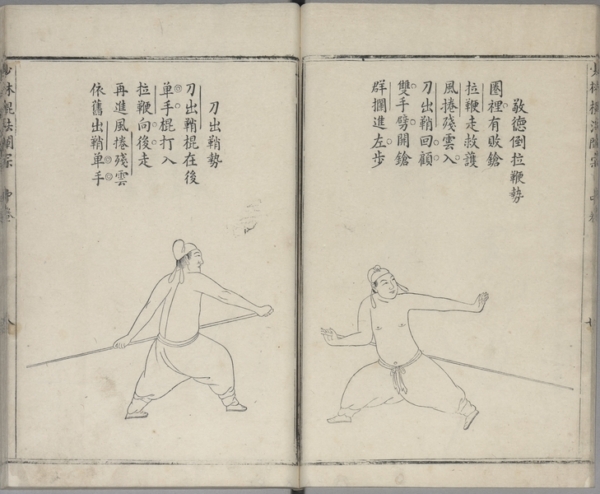 少林棍法闡宗 中卷 七
敬德倒拉鞭勢
圈裡有敗鎗
拉鞭走救護
風捲殘雲入
刀出鞘回顧
雙手劈開鎗
群攔進左步
刀出鞘勢
刀出鞘棍在後
單手棍打入
拉鞭向後走
再進風捲殘雲
依舊出鞘單手
少林棍法闡宗 中卷 八